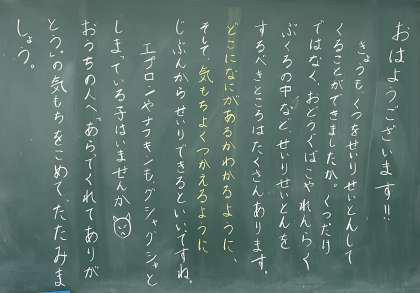 おはようございます!!
きょうも、くつをせいりせいとんして
くることができましたか。くつだけ
ではなく、おどうぐばこやれんらく
ぶくろの中など、せいりせいとんを
するべきところはたくさんあります。
どこになにがあるかわかるように、
そして、気もちよくつかえるように
じぶんからせいりできるといいですね。
エプロンやナフキンも、グシャグシャと
しまっている子はいませんか
おうちの人へ、「あらってくれてありが
とう」の気もちをこめて、たたみま
しょう。